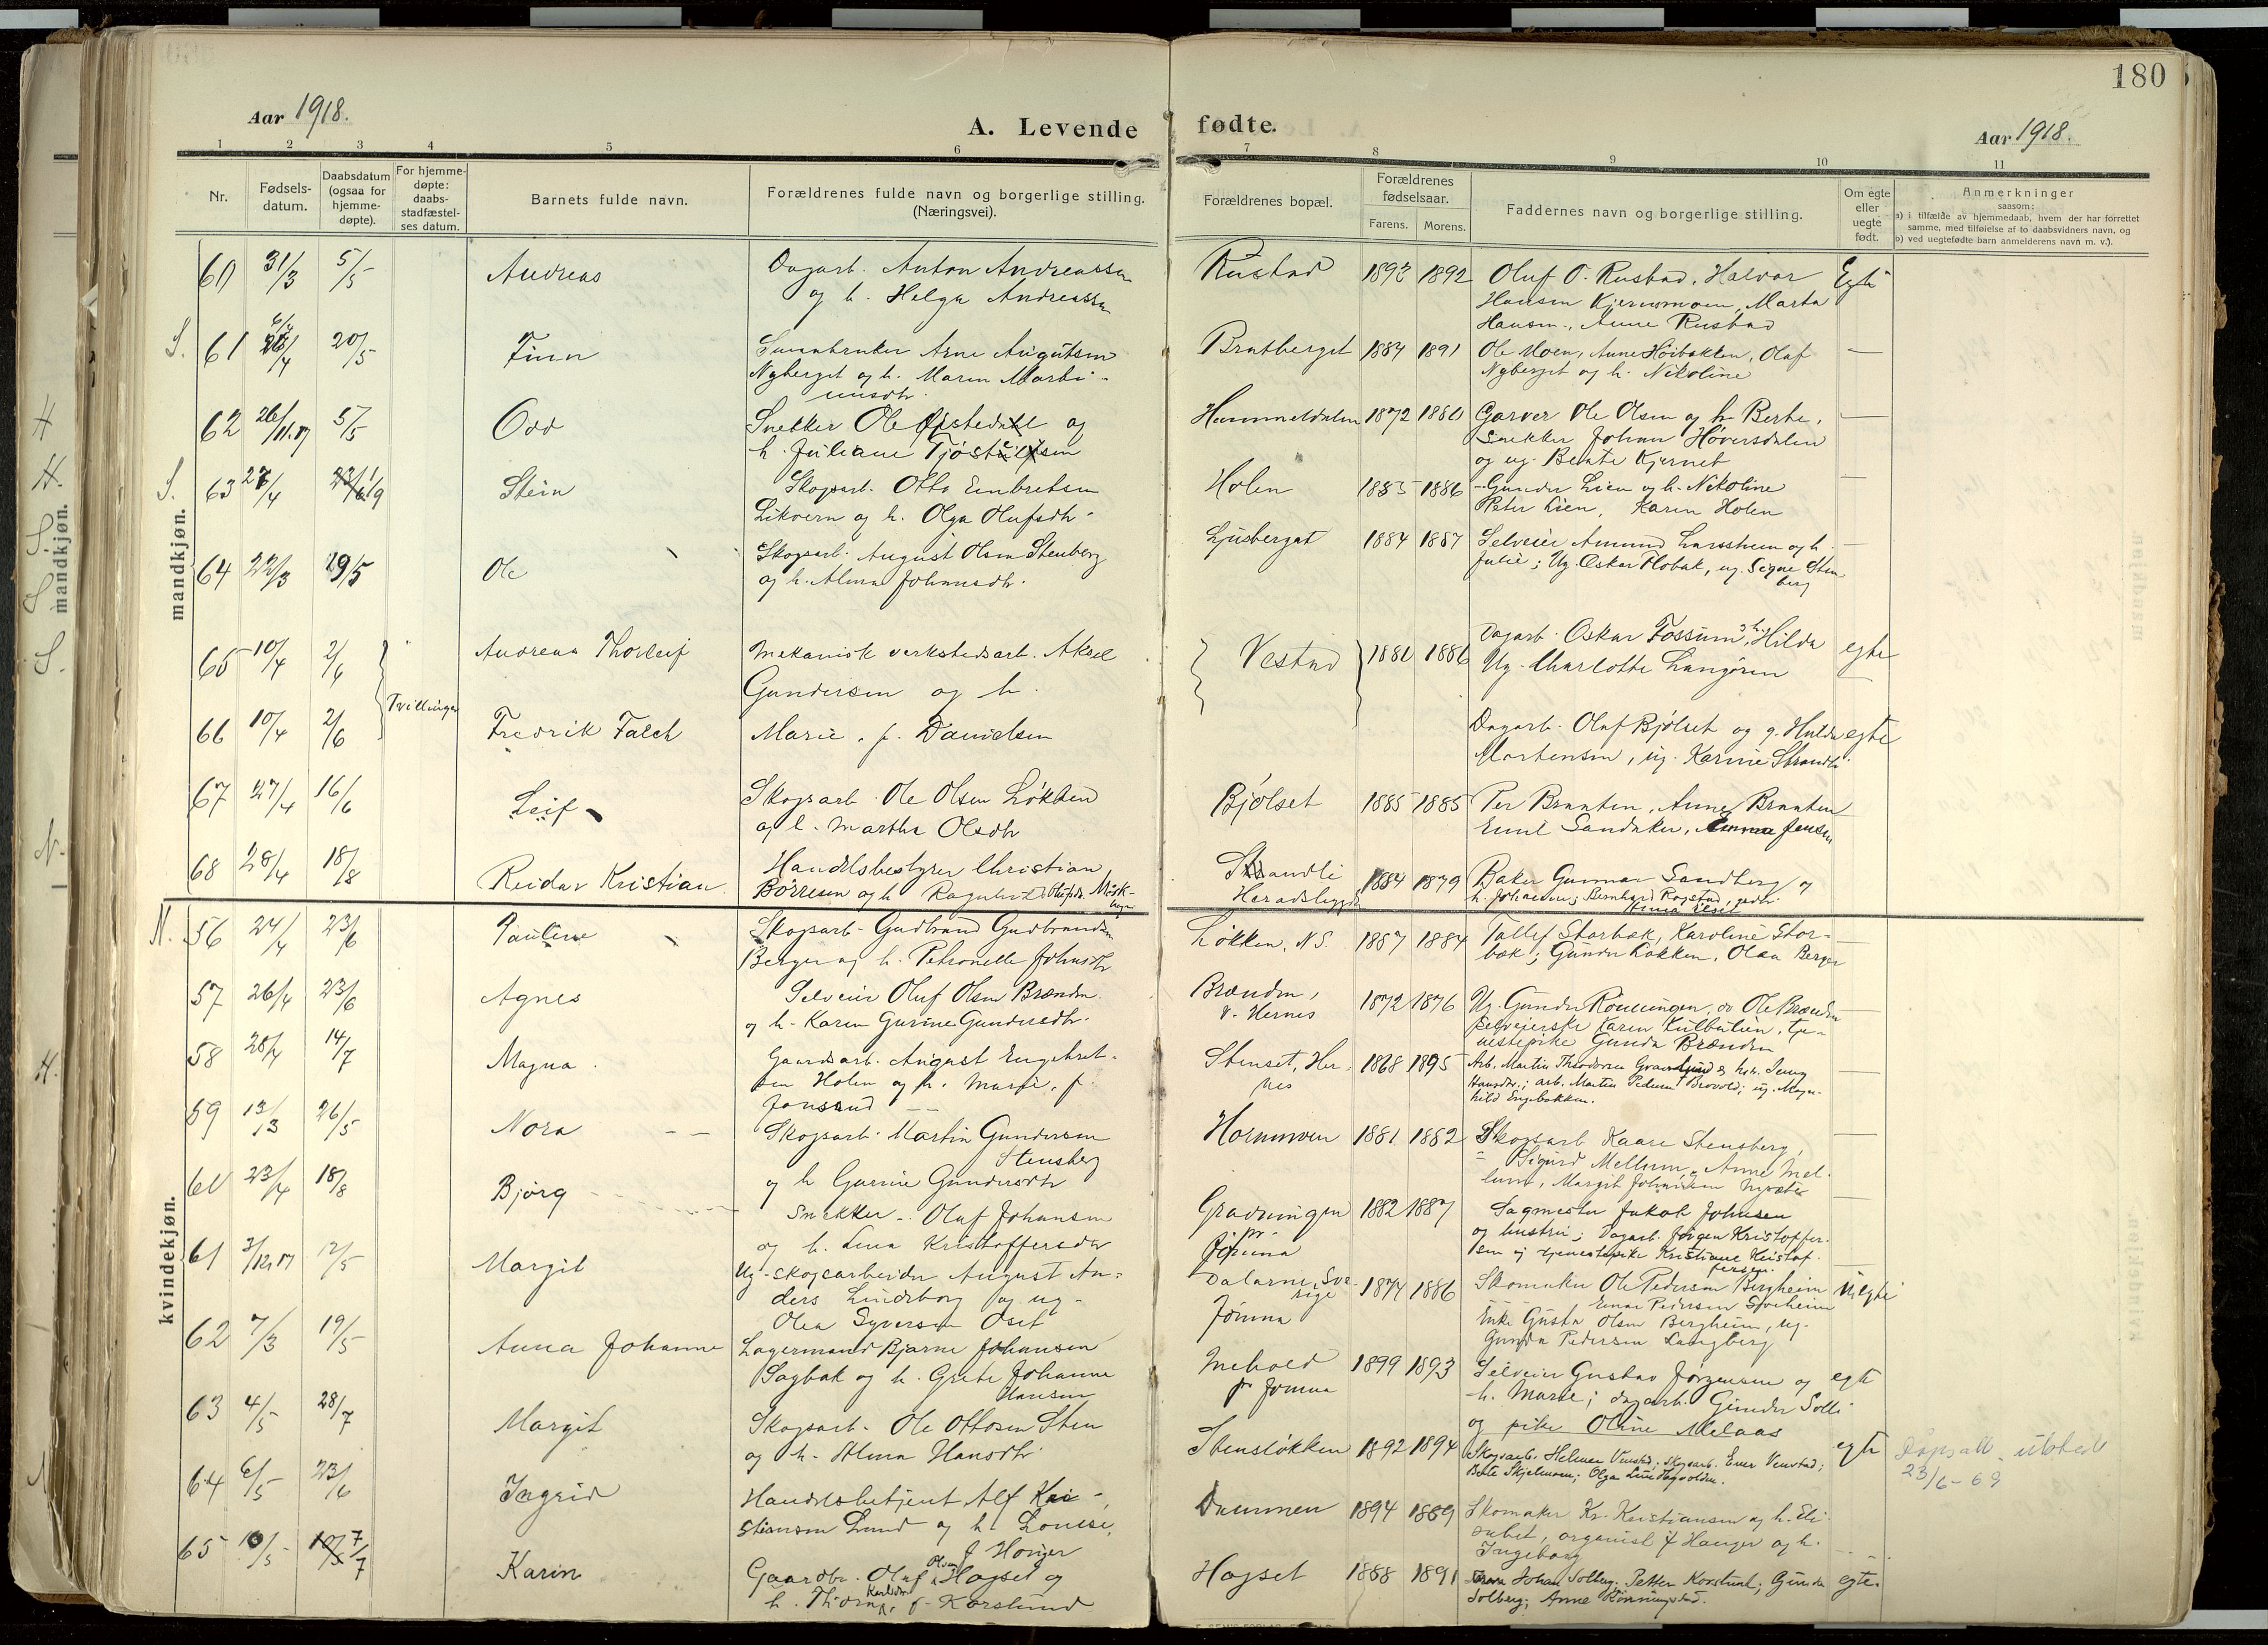 180
Aar 1918.
A. Levende fødte.
Aar 1918.
1 2 3 4 5 6 7 8 9 10 11
Nr.
Fødsels-
datum.
Daabsdatum
(ogsaa for
hjemme-
døpte).
For hjemme-
døpte:
daabs-
stadfæstel-
ses datum.
Barnets fulde navn.
Forældrenes fulde navn og borgerlige stilling.
(Næringsvei).
Forældrenes bopæl.
Forældrenes
fødselsaar.
Farens. Morens.
Faddernes navn og borgerlige stilling.
Om egte
eller
uegte
født.
Anmerkninger
saasom:
a) i tilfælde av hjemmedaab, hvem der har forrettet
samme, med tilføielse av to daabsvidners navn, og
b) ved uegtefødte barn anmelderens navn m. v.).
mandkjøn.
60 31/3 5/5 Andreas Dagarb. Anton Andreassen
og h. Helga Andreassen
Rustad 1893 1892 Oluf O. Rustad, Halvor
Hansen Kjernmoen, Marta
Hansen, Anne Rustad
Egte
S. 61 20/5 Finn Arne Augutsen
Nyberget og h. Maren Marti-
nusdtr
Bratberget 1884 1891 Ole Moen, Anne Höibakken, Olaf
Nyberget og h. Nikoline
62 26/11.17 5/5 Odd Snekker Ole Opstedale og
h. Juliane
Hummeldalen 1872 1880 Garver Ole Olsen og h. Berte,
Snekker Johan Höversdalen
og ug. Beate Kjernet
S. 63 27/4 1/9 Stein Skogsarb. Otto Embretsen
Likvern og h. Olga Olufsdtr.
Holen 1885 1886 Gunder Lien og h. Nikoline
Peter Lien, Karen Holen
64 22/3 19/5 Ole Skogsarb. August Olsen Stenberg
og h. Alma Johansdtr.
Ljusberget 1884 1887 Selveier Amund Larsshum og h.
Julie; Ug. Oskar Flobak, ug. Signe Sten
berg
65 10/4 2/6 Andreas Thorleif Mekanisk verkstedsarb. Aksel
Gundersen og h.
Tvillinger
Vestad 1881 1886 Dagarb. Oskar Fossum, h. Hilda
Ug. Charlotte Langören
egte
66 10/4 2/6 Fredrik Falch Marie, f. Danielsen
Dagarb. Olaf Bjölset og g. Hulda
Martensen, ug. Karine Strandli
egte
67 27/4 16/6 Leif Skogsarb. Ole Olsen Lökken
og h. Martha Olsdtr
Bjölset 1885 1885 Per Braaten, Anne Braaten
Emil Sandaker, Emma Jensen
68 28/4 18/8 Reidar Kristian Handelsbestyrer Christian
Börresen og h. Ragnhild Olufsdtr. Mosk-
haugen
Strandli
Heradsbygda 1884 1879 Baker Gunnar Sandberg og
h. Johanne; Bernhard Rogstad, gdbr.
Anna Elset
kvindekjøn.
N. 56 24/4 23/6 Pauline Skogsarb. Gudbrand Gudbrandsen
Berger og h. Petronelle Johnsdtr
Lökken, N.S. 1887 1884 Tollef Storbæk, Karoline Stor-
bæk; Gunder Lökken, Olaa Berger
57 26/4 23/6 Agnes Selveier Oluf Olsen Brænden
og h. Karen Gurine Gundersdtr.
Brænden,
v. Hernes 1872 1876 Ug. Gunder Rönningen, do Ole Brænden
selveierske Karen Kulbutlien, tje-
nestepike Gunda Brænden
58 28/4 14/7 Magna Gaardsarb. August Engebret-
sen Holen og h. Marie, f.
Jonsrud
Stenset, Her-
nes 1868 1895 Arb. Martin Theodoren Graarlund og h. h. Jenny
Hansdtr.; arb. Martin Pedersen Brovold; ug. Magn-
hild Engebakken.
59 13/3 26/5 Nora Skogsarb. Martin Gundersen
Stensberg
og h Gurine Gundersdtr
Hornmoen 1881 1882 Skogsarb Kaare Stensberg,
" Sigurd Mellum, Anne Mel-
lum, Margit Johnsen Nysæter
60 23/4 18/8 Bjørg Snekker Oluf Johansen
og h. Lina Kristoffersdtr
Gravningen
pr.
Jömna 1882 1887 Sagmester Jakob Johnsen
og hustru; Dagarb. Jørgen Kristoffer-
sen og tjenestepike Kristiane Kristof-
fersen.
61 3/12.17 12/5 Margit Ug. skogsarbeider August An-
ders Lindborg og ug.
Olea Syversen Oset
Dalarne, Sve-
rige 1874 1886
Jömna
Skomaker Ole Pedersen Bergheim
Einar Pedersen Solheim
Enke Gusta Olsen Bergheim, ug.
Gunda Pedersen Langberg
Uegte
62 7/3 19/5 Anna Johanne Lagermand Bjarne Johansen
Sagbak og h. Grete Johanne
Hansen
Melvold
pr Jömna 1899 1893 Selveier Gustav Jørgensen og
h. Marie; dagarb. Gunder Solli
og pike Oline Melaas
egte
63 4/5 28/7 Margit Skogsarb. Ole Ottosen Sten
og h. Alma Hansdtr.
Stenslökken 1892 1894 Skogsarb. Helmer Venstad; skogsarb. Einar Venstad;
Berte Skjelmoen;
egte
23/6-69
64 6/5 23/6 Ingrid Handelsbetjent Alf Kri-
stiansen Lund og h. Lovise,
f Horgen
Drammen 1894 1889 Skomaker Kr. Kristiansen og h. Eli-
sabet, organist Hanger og h.
Ingeborg
65 10/5 7/7 Karin Gaardbr. Oluf Olsen Hagset og
h. Karlsdtr. f. Korslund
Hagset 1888 1891 Johan Solberg, Petter Korslund; Gunda
Solberg; Anne Rönningstad.
egte.